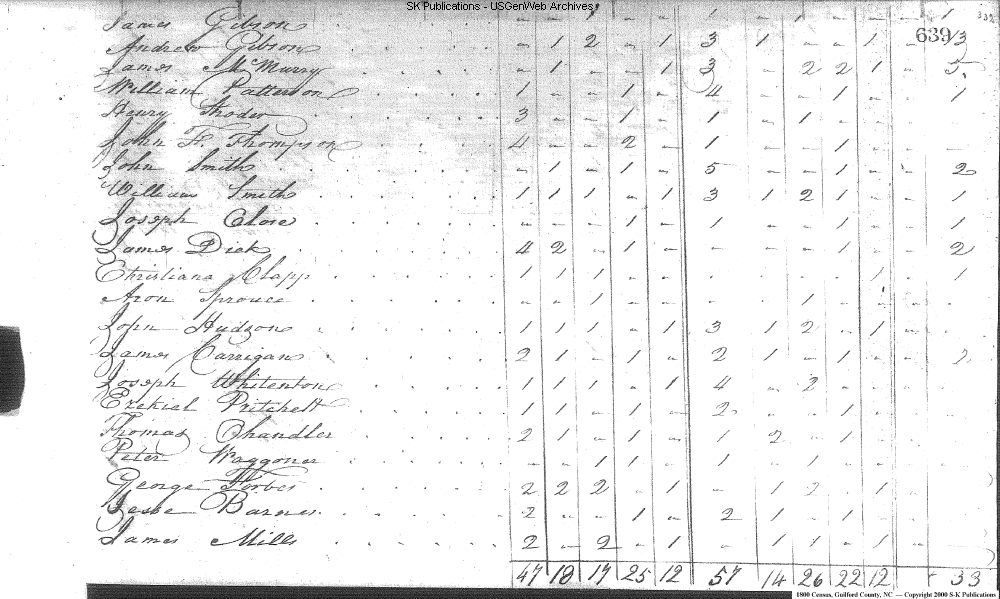 SK Publications - USGenWeb Archives
639
James Gibson - - 1 - - 1 - - - - - 1
Andrew Gibson - 1 2 - 1 3 1 - - 1 - 3
James McMurry - 1 - - 1 3 - 2 2 1 - 5
William Patterson 1 - - 1 - 4 - - 1 - - 1
Henry 3 - - 1 - 1 - 1 - - -
John F. Thompson 4 - - 2 - 1 - - 1 - - -
John Smith - 1 - 1 - 5 - - 1 - - 2
William Smith 1 1 1 - 1 3 1 2 1 - - 1
Joseph Close - - - 1 - 1 - - 1 - - 1
James Dick 4 2 - 1 - - - - 1 - - 2
Christiana Clapp 1 1 1 - - - - - - 1 - 1
Aron Sprouce - - 1 - - - - 1 - - -
John Hudson 1 1 1 - 1 3 1 2 - 1 -
James Carrigan 2 1 - 1 - 2 1 - 1 - - 2
Joseph Whitenton 1 1 1 - 1 4 - 2 - - -
Ezekiel Pritchett 1 1 - 1 - 2 - - 1 - -
Thomas Chandler 2 1 - 1 - 1 2 - 1 - - -
Peter Waggoner - - 1 1 - 1 - 1 - - - -
George Forbes 2 2 2 - 1 - 1 2 - 1 - -
Jesse Barnes 2 - - 1 - 2 1 - 1 - - -
James Mills 2 - 2 - 1 - 1 1 - 1 - -
47 18 17 25 12 57 14 26 22 12 33
1800 Census, Guilford County, NC — Copyright 2000 S-K Publications